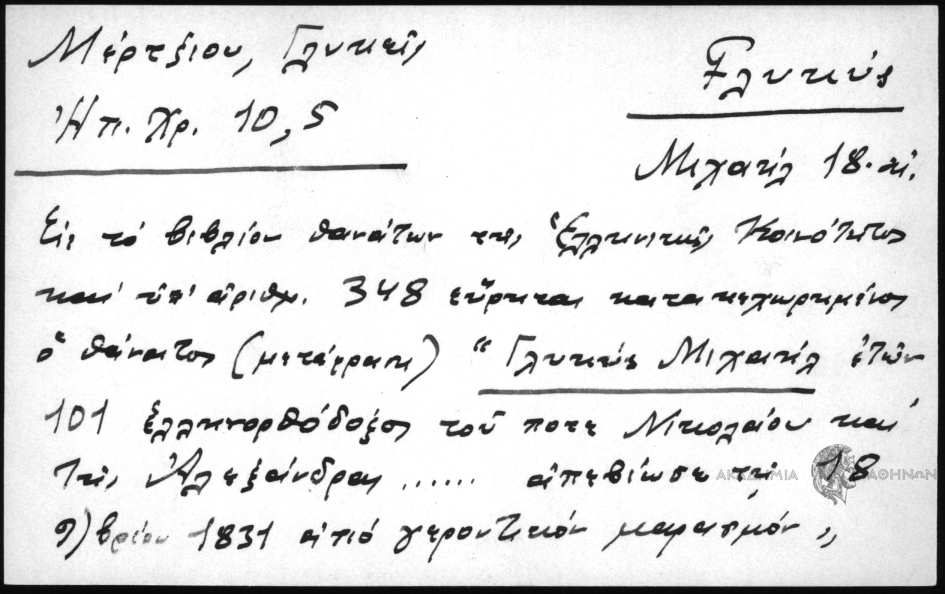 Μέρτζιου, Γλυκεῖς
Γλυκύς
Ἠπ. Χρ. 10, 5
Μιχαήλ 18. αἰ.
Εἰς τό βιβλίον θανάτων τῆς Ἑλληνικῆς Κοινότητος
καί ὑπ' ἀριθμ. 348 εὕρηται κατακεχωρημένος
ὁ θάνατος (μετάφρασις) "Γλυκύς Μιχαήλ ἐτῶν
101 ἑλληνορθόδοξος τοῦ ποτε Νικολάου καί
τῆς Ἀλεξάνδρας ...... ἀπεβίωσε τῇ 18
ΑΚΑΔΗΜΙΑ ΑΘΗΝΩΝ
9)βρίου 1831 ἀπό γεροντικόν μαρασμόν"